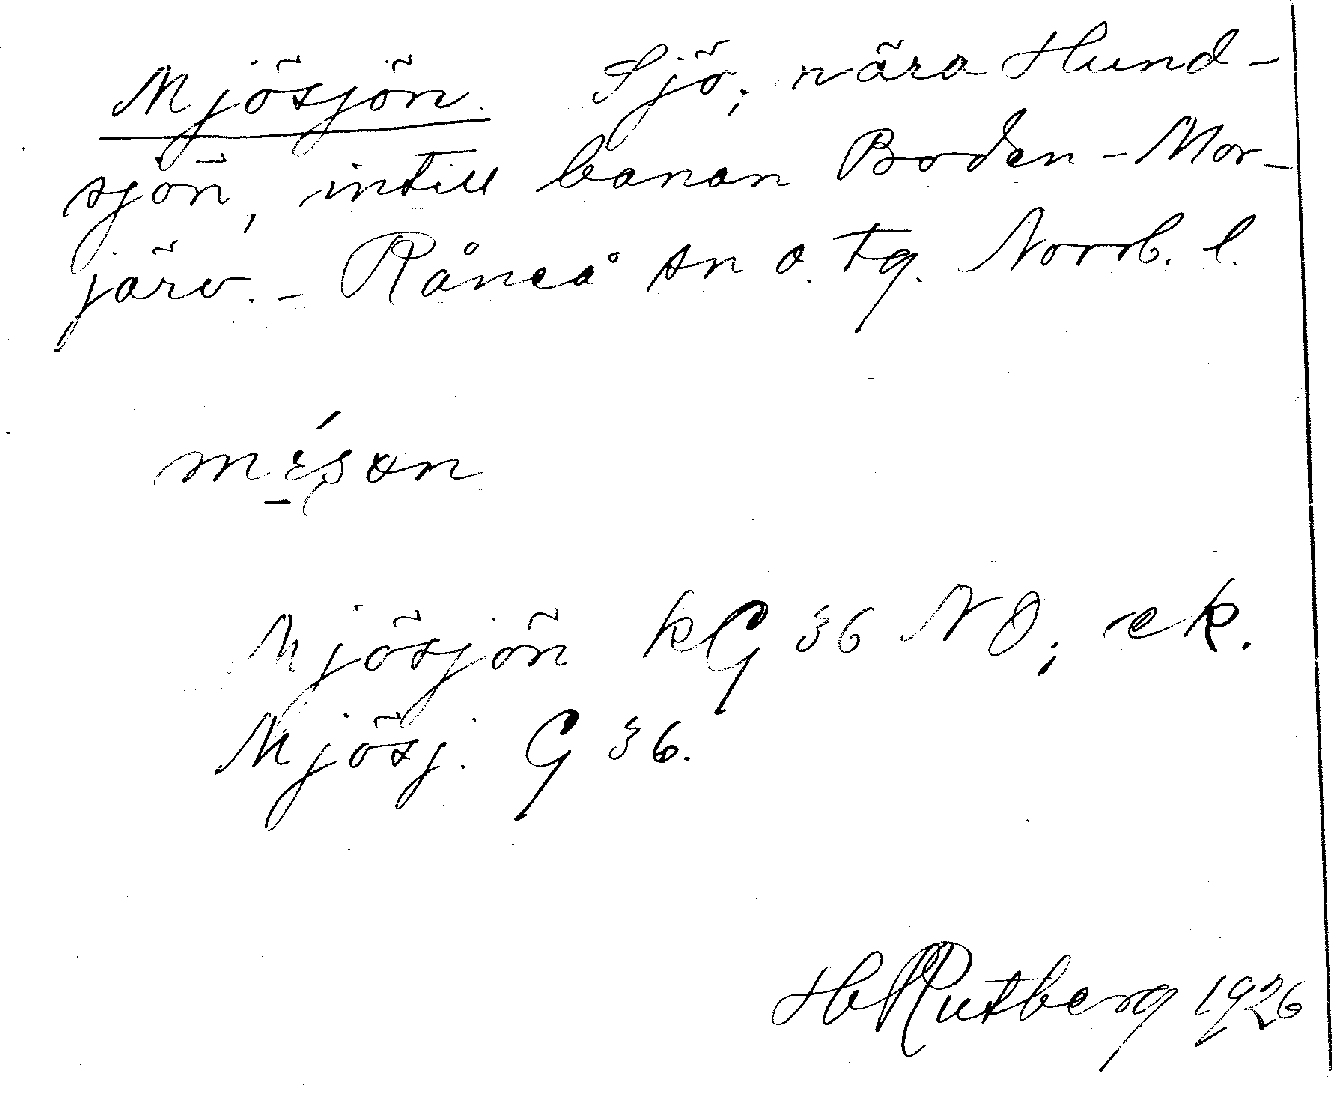 Mjösjön. Sjö, nära Hund-
sjön, intill banan Boden-Mor-
järv. - Råneå sn o. tg. Norrb. l.
Mjösjön kG 36 NO; ek.
Mjösj. G 36.
H Rutberg 1926